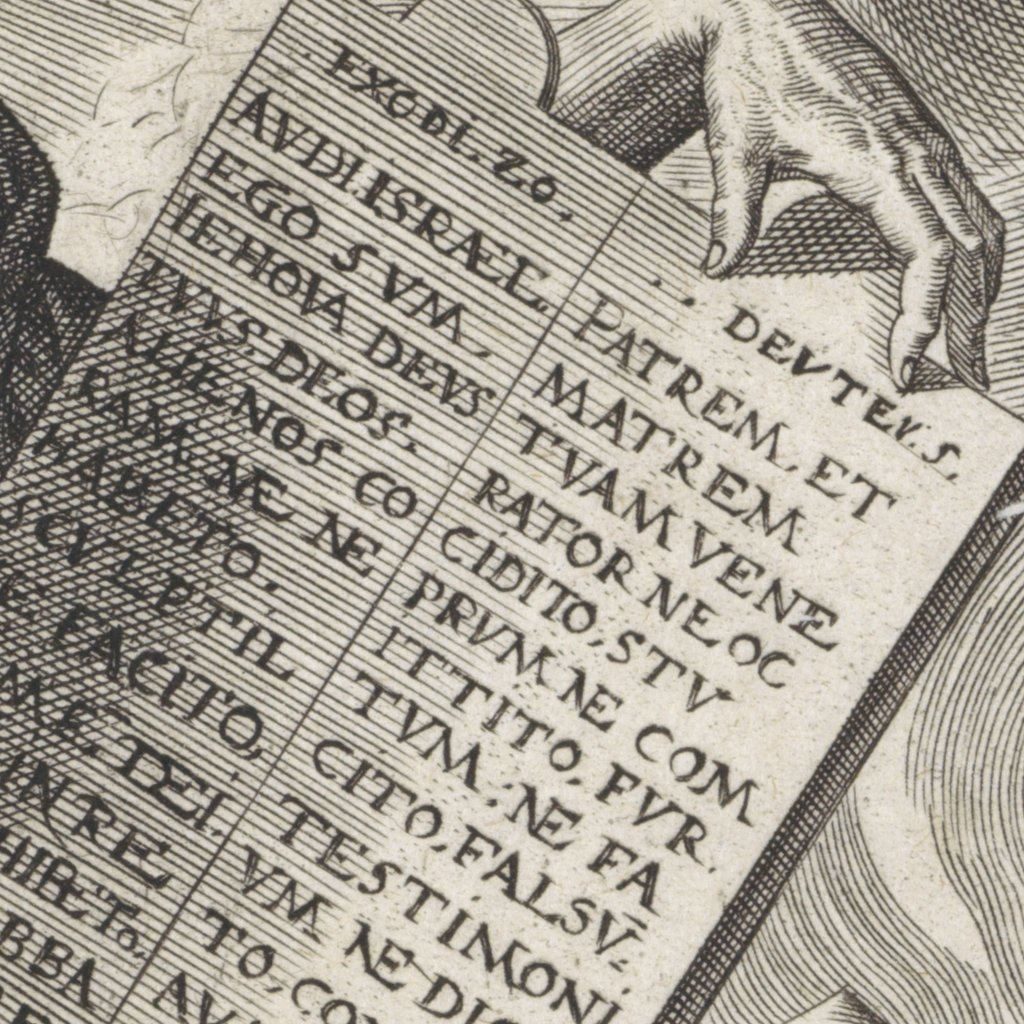 EXODI. 20.
AVDI ISRAEL
EGO SVM,
IEHOVA DEVS
TVVS, DEOS.
ALIENOS CO
RAM ME NE
HABETO,
SCVLPTIL
E FACITO,
DEI.
IN RE
HIBETO,
BBA
DEVTER. 5.
PATREM, ET
MATREM
TVAM VENE
RATOR NE OC
CIDITO, STV
PRVM, NE COM
ITTITO, FVR.
TVM, NE FA
CITO, FALSV̄.
TESTIMONI
VM NE DI
TO, CO